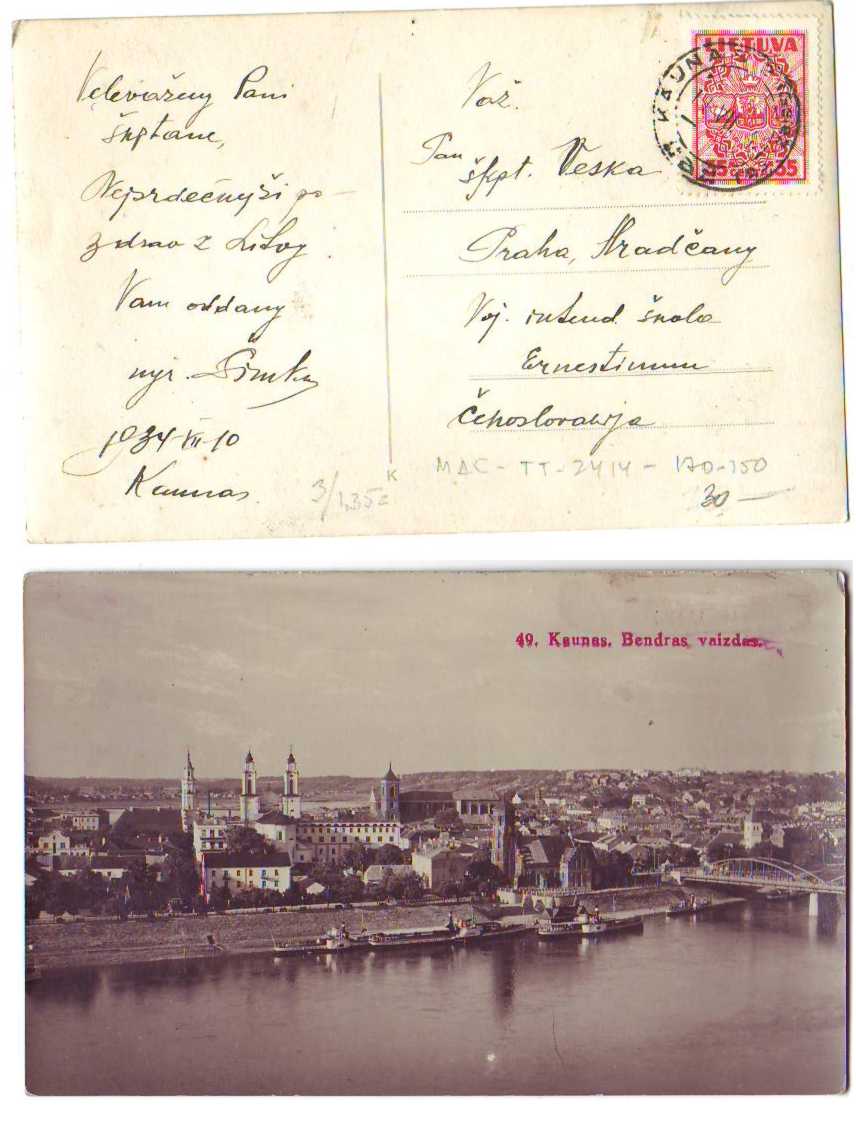 Velevážený Pani
škptane,
Nejsrdečnyši po-
zdrav z Litvy.
Vam oddany
mjr. Šimkus
1934-VII-10
Kaunas.
3/1,35
Važ.
Pan
škpt. Veska
Praha, Hradčany
Voj. intend. škola
Ernestinum
Čehoslovakija
K
MAC-TT-2414-170-150
30 —
LIETUVA
35 35
KAUNAS
49. Kaunas. Bendras vaizdas.